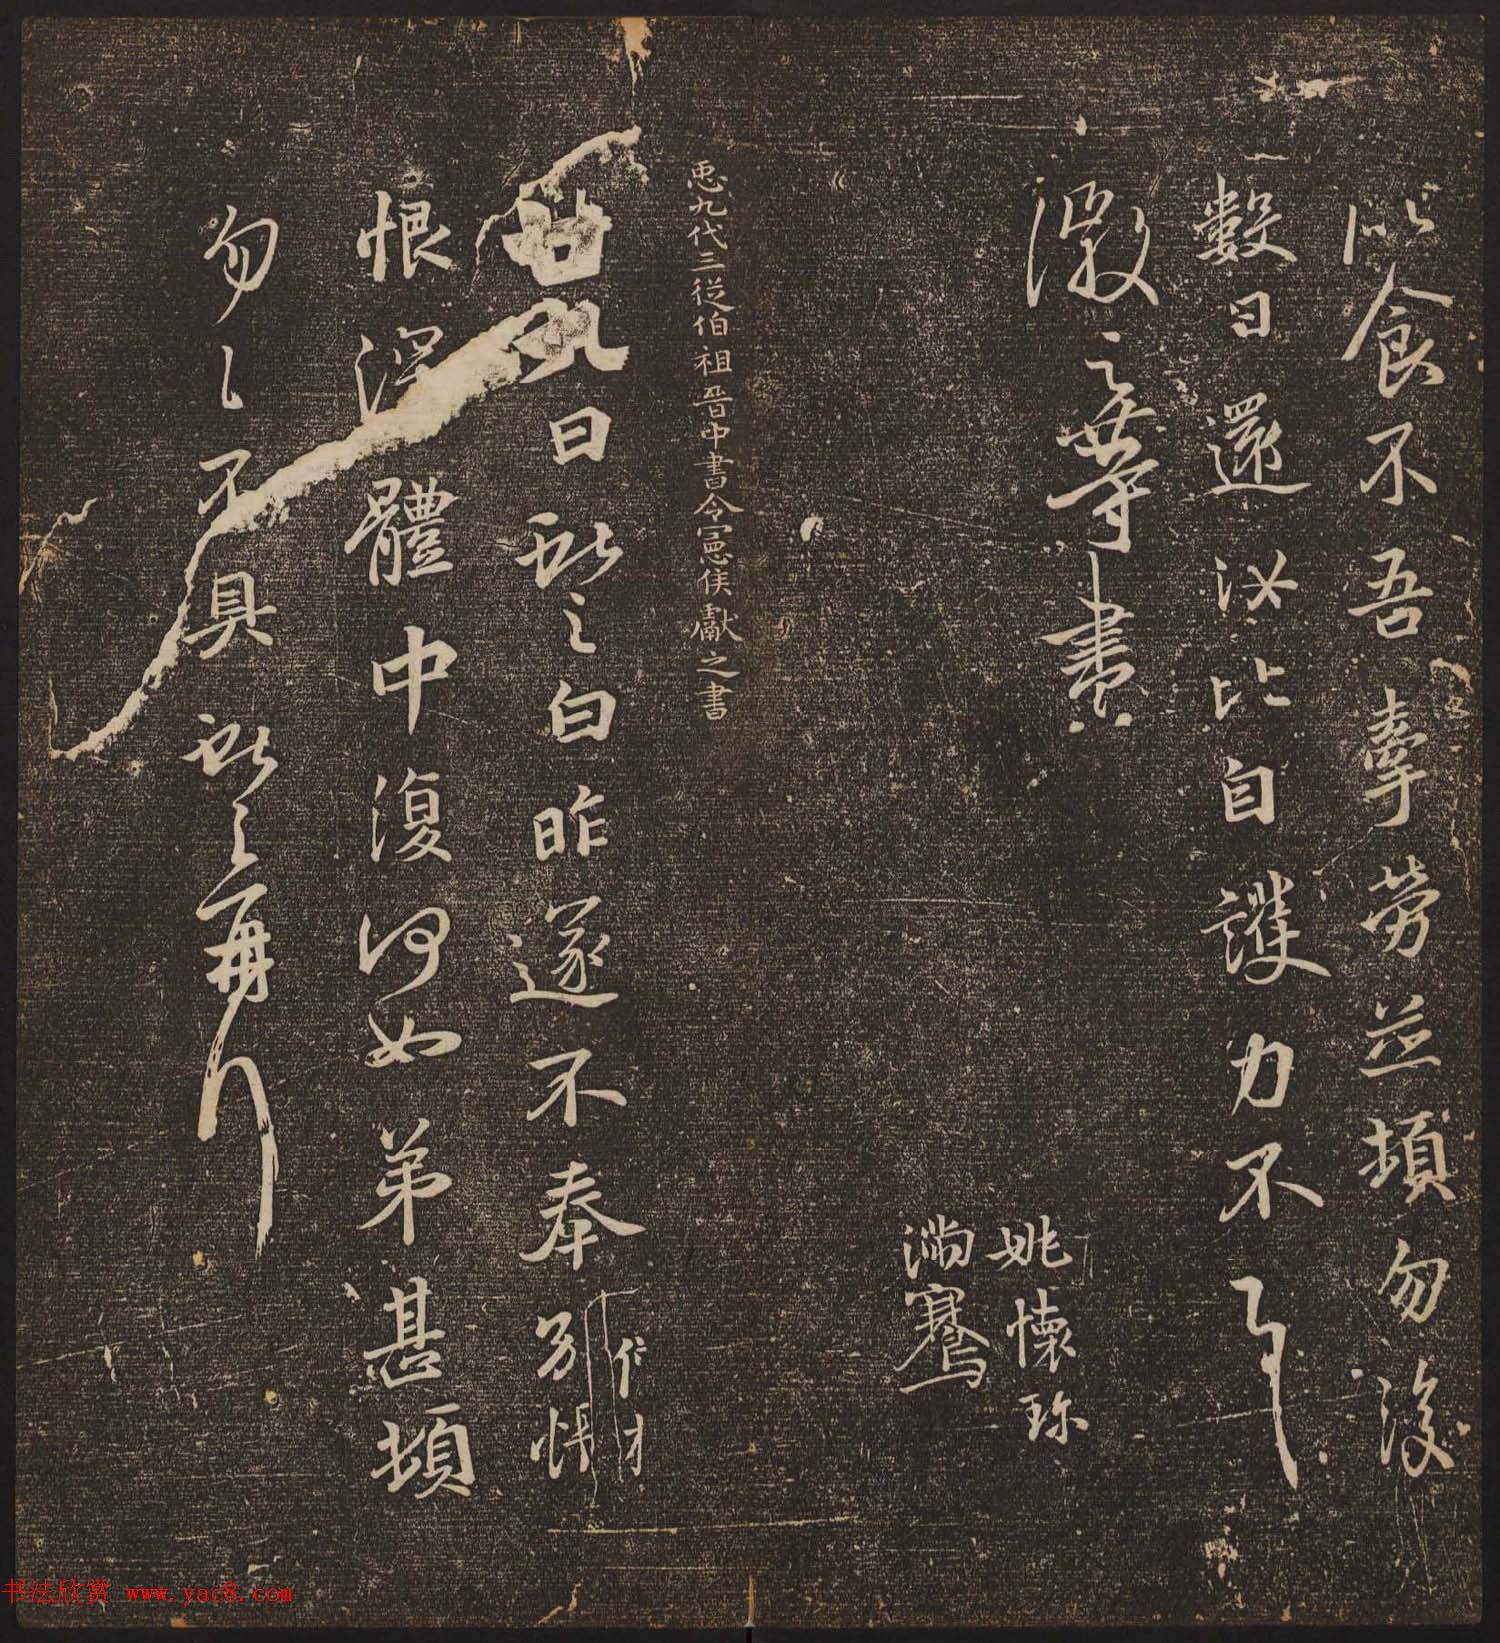 以食不吾牽勞並頓勿復
數日還汝比自護力不具
徽之等書
姚懷珍
滿騫
臣九代三從伯祖晉中書令憲侯獻之書
廿九日獻之白昨遂不奉別悵
恨深體中復何如弟甚頓
匆匆不具獻之再拜
书法欣赏 www.yac8.com